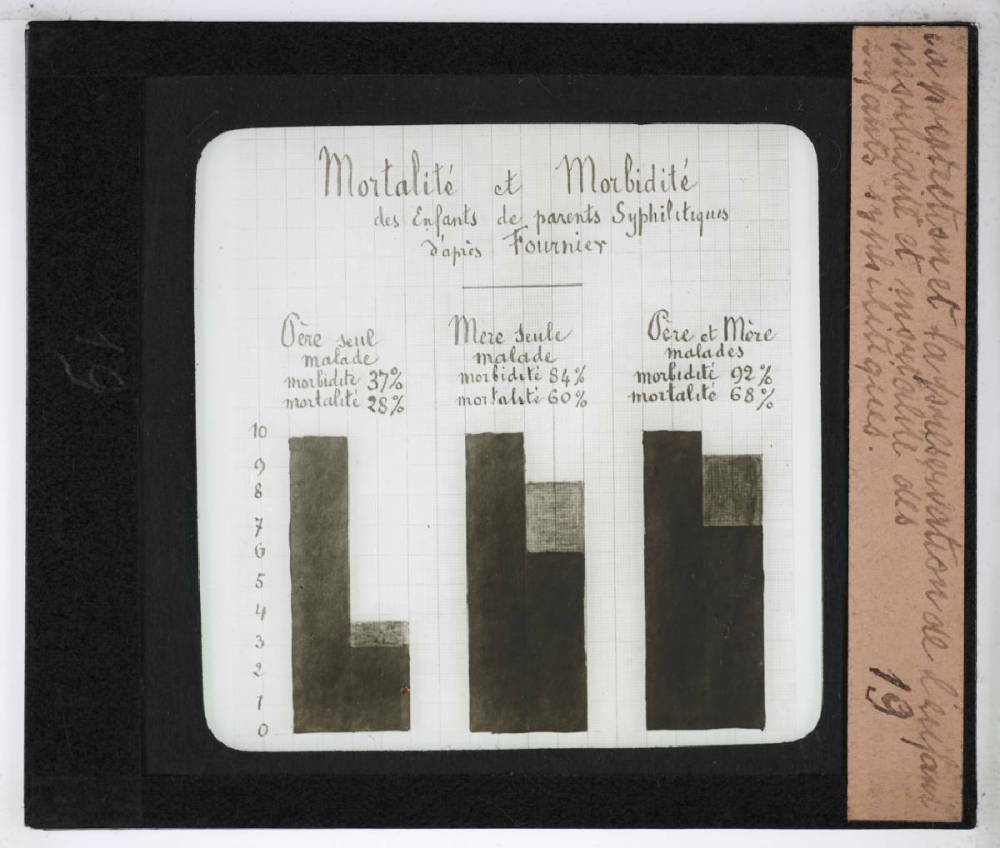 Mortalité et Morbidité
des Enfants de parents Syphilitiques
d'après Fournier
Père seul
malade
morbidité 37%
mortalité 28%
Mère seule
malade
morbidité 84%
mortalité 60%
Père et Mère
malades
morbidité 92%
mortalité 68%
10
9
8
7
6
5
4
3
2
1
0
La protection et la préservation de l'enfant
morbidité et mortalité des
enfants syphilitiques.
19